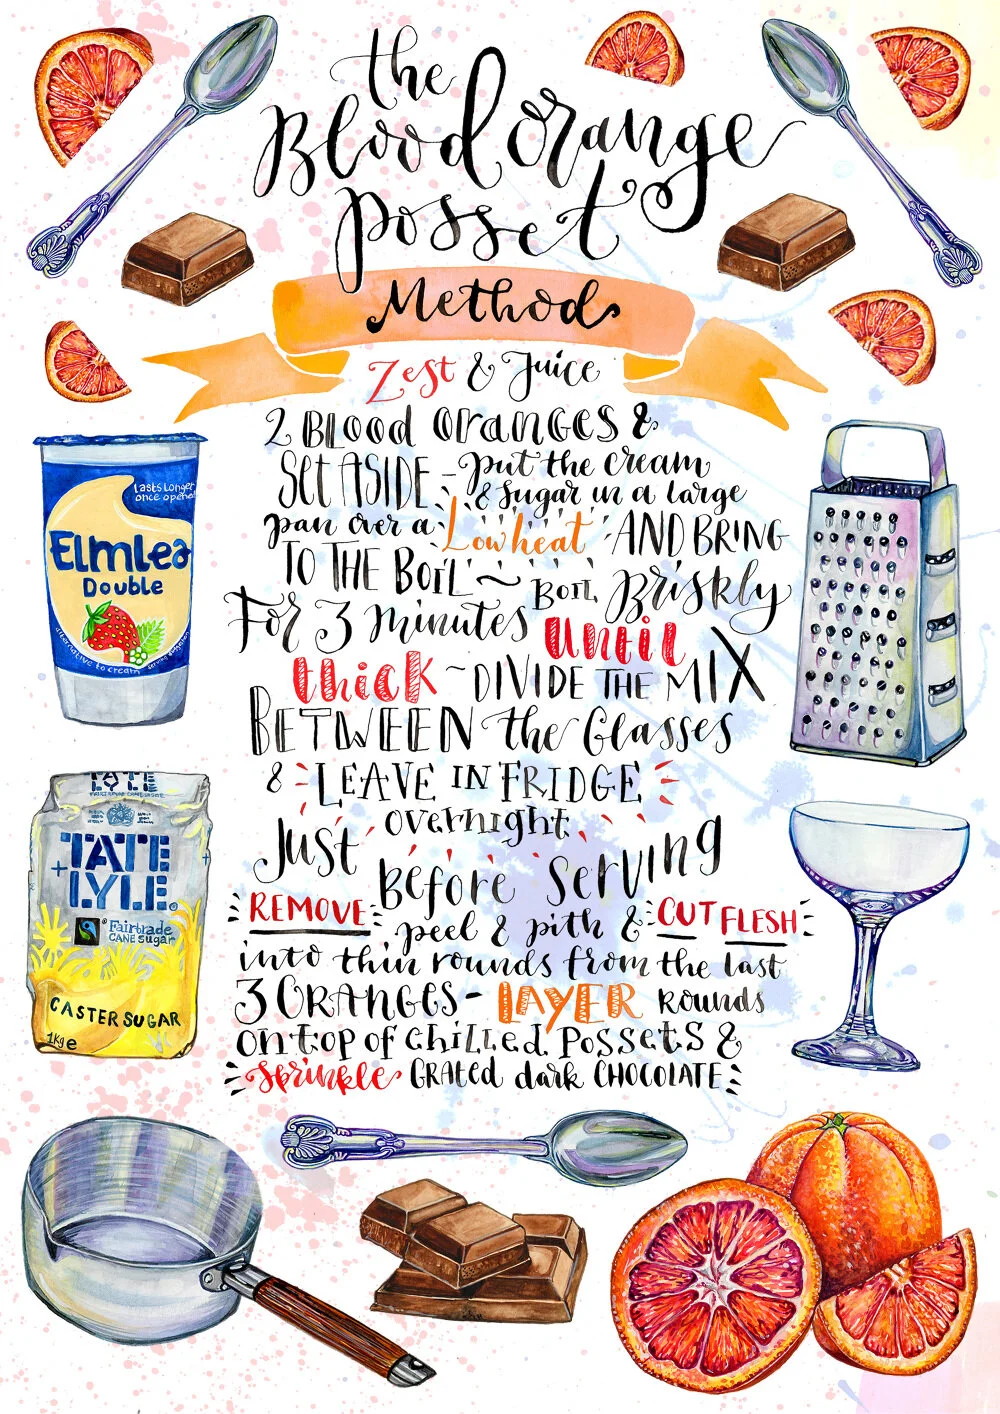 the
Blood orange
Posset
Method
Zest & Juice
2 BLOOD ORANGES &
SET ASIDE - Put the cream
& sugar in a large
pan over a Low heat AND BRING
TO THE BOIL ~ BOIL Briskly
For 3 Minutes until
thick ~ DIVIDE THE MIX
BETWEEN the Glasses
& LEAVE IN FRIDGE
overnight
Just Before Serving
REMOVE peel & pith & CUT FLESH
into thin rounds from the last
3 ORANGES - LAYER Rounds
on top of CHILLED POSSETS &
Sprinkle GRATED dark CHOCOLATE
Lasts Longer
once opened
Elmlea
Double
alternative to cream
TATE
LYLE
TATE
+LYLE
Fairtrade
CANE sugar
CASTER SUGAR
1Kg e